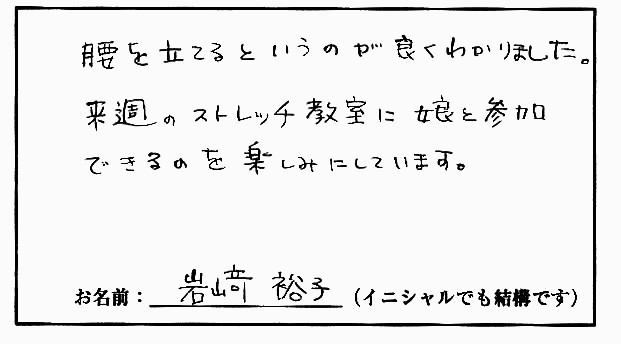 腰を立てるというのが良くわかりました。
来週のストレッチ教室に娘と参加
できるのを楽しみにしています。
お名前：岩﨑 裕子（イニシャルでも結構です）